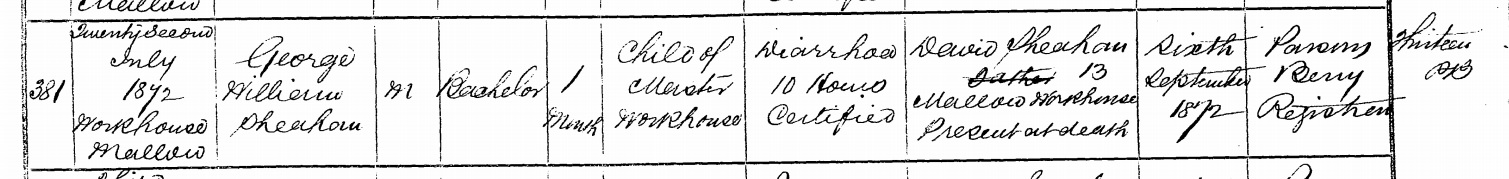 Mallow
381
Twenty Second
July
1872
Workhouse
Mallow
George
William
Sheahan
M
Bachelor
1
Month
Child of
Master
Workhouse
Diarrhoea
10 Hours
Certified
David Sheahan
Father 13
Mallow Workhouse
Present at death
Sixth
September
1872
Parsons
Berry
Registrar
Thirteen